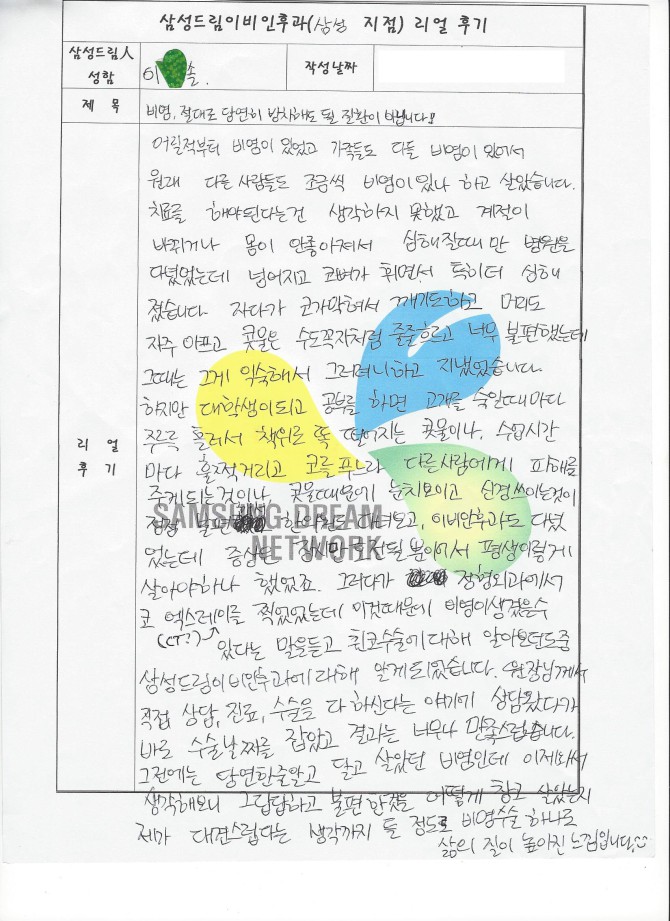 삼성드림이비인후과(삼성 지점) 리얼 후기
삼성드림人 성함
이 솔.
작성날짜
제 목
비염, 절대로 당연히 방치해도 될 질환이 아닙니다!
리 얼 후 기
어릴적부터 비염이 있었고 가족들도 다들 비염이 있어서
원래 다른 사람들도 조금씩 비염이 있나 하고 살았습니다.
치료를 해야된다는건 생각하지 못했고 계절이
바뀌거나 몸이 안좋아져서 심해질때만 병원을
다녔었는데 넘어지고 코뼈가 휘면서 특히더 심해
졌습니다. 자다가 코가막혀서 깨기도하고 머리도
자주 아프고 콧물은 수도꼭지처럼 줄줄흐르고 너무 불편했는데
그때는 그게 익숙해서 그러려니하고 지냈었습니다.
하지만 대학생이되고 공부를 하면 고개를 숙일때마다
주르륵 흘러서 책위로 뚝 떨어지는 콧물이나, 수업시간
마다 훌쩍거리고 코를푸느라 다른사람에게 피해를
주게되는것이나 콧물때문에 눈치보이고 신경쓰이는것이
점점 불편 한의원도 다녀보고, 이비인후과도 다녔
었는데 증상은 잠시만 호전될 뿐이어서 평생이렇게
살아야하나 했었죠. 그러다가 정형외과에서
코 엑스레이를 찍었었는데 이것때문에 비염이생겼을수
(CT?)
있다는 말을듣고 휜코수술에대해 알아보던도중
삼성드림이비인후과에대해 알게되었습니다. 원장님께서
직접 상담, 진료, 수술을 다 하신다는 얘기에 상담왔다가
바로 수술날짜를 잡았고 결과는 너무나 만족스럽습니다.
그전에는 당연한줄알고 달고 살았던 비염인데 이제와서
생각해보니 그 답답하고 불편한것을 어떻게 참고 살았는지
제가 대견스럽다는 생각까지 들 정도로 비염수술 하나로
삶의 질이 높아진 느낌입니다.
SAMSUNG DREAM
NETWORK